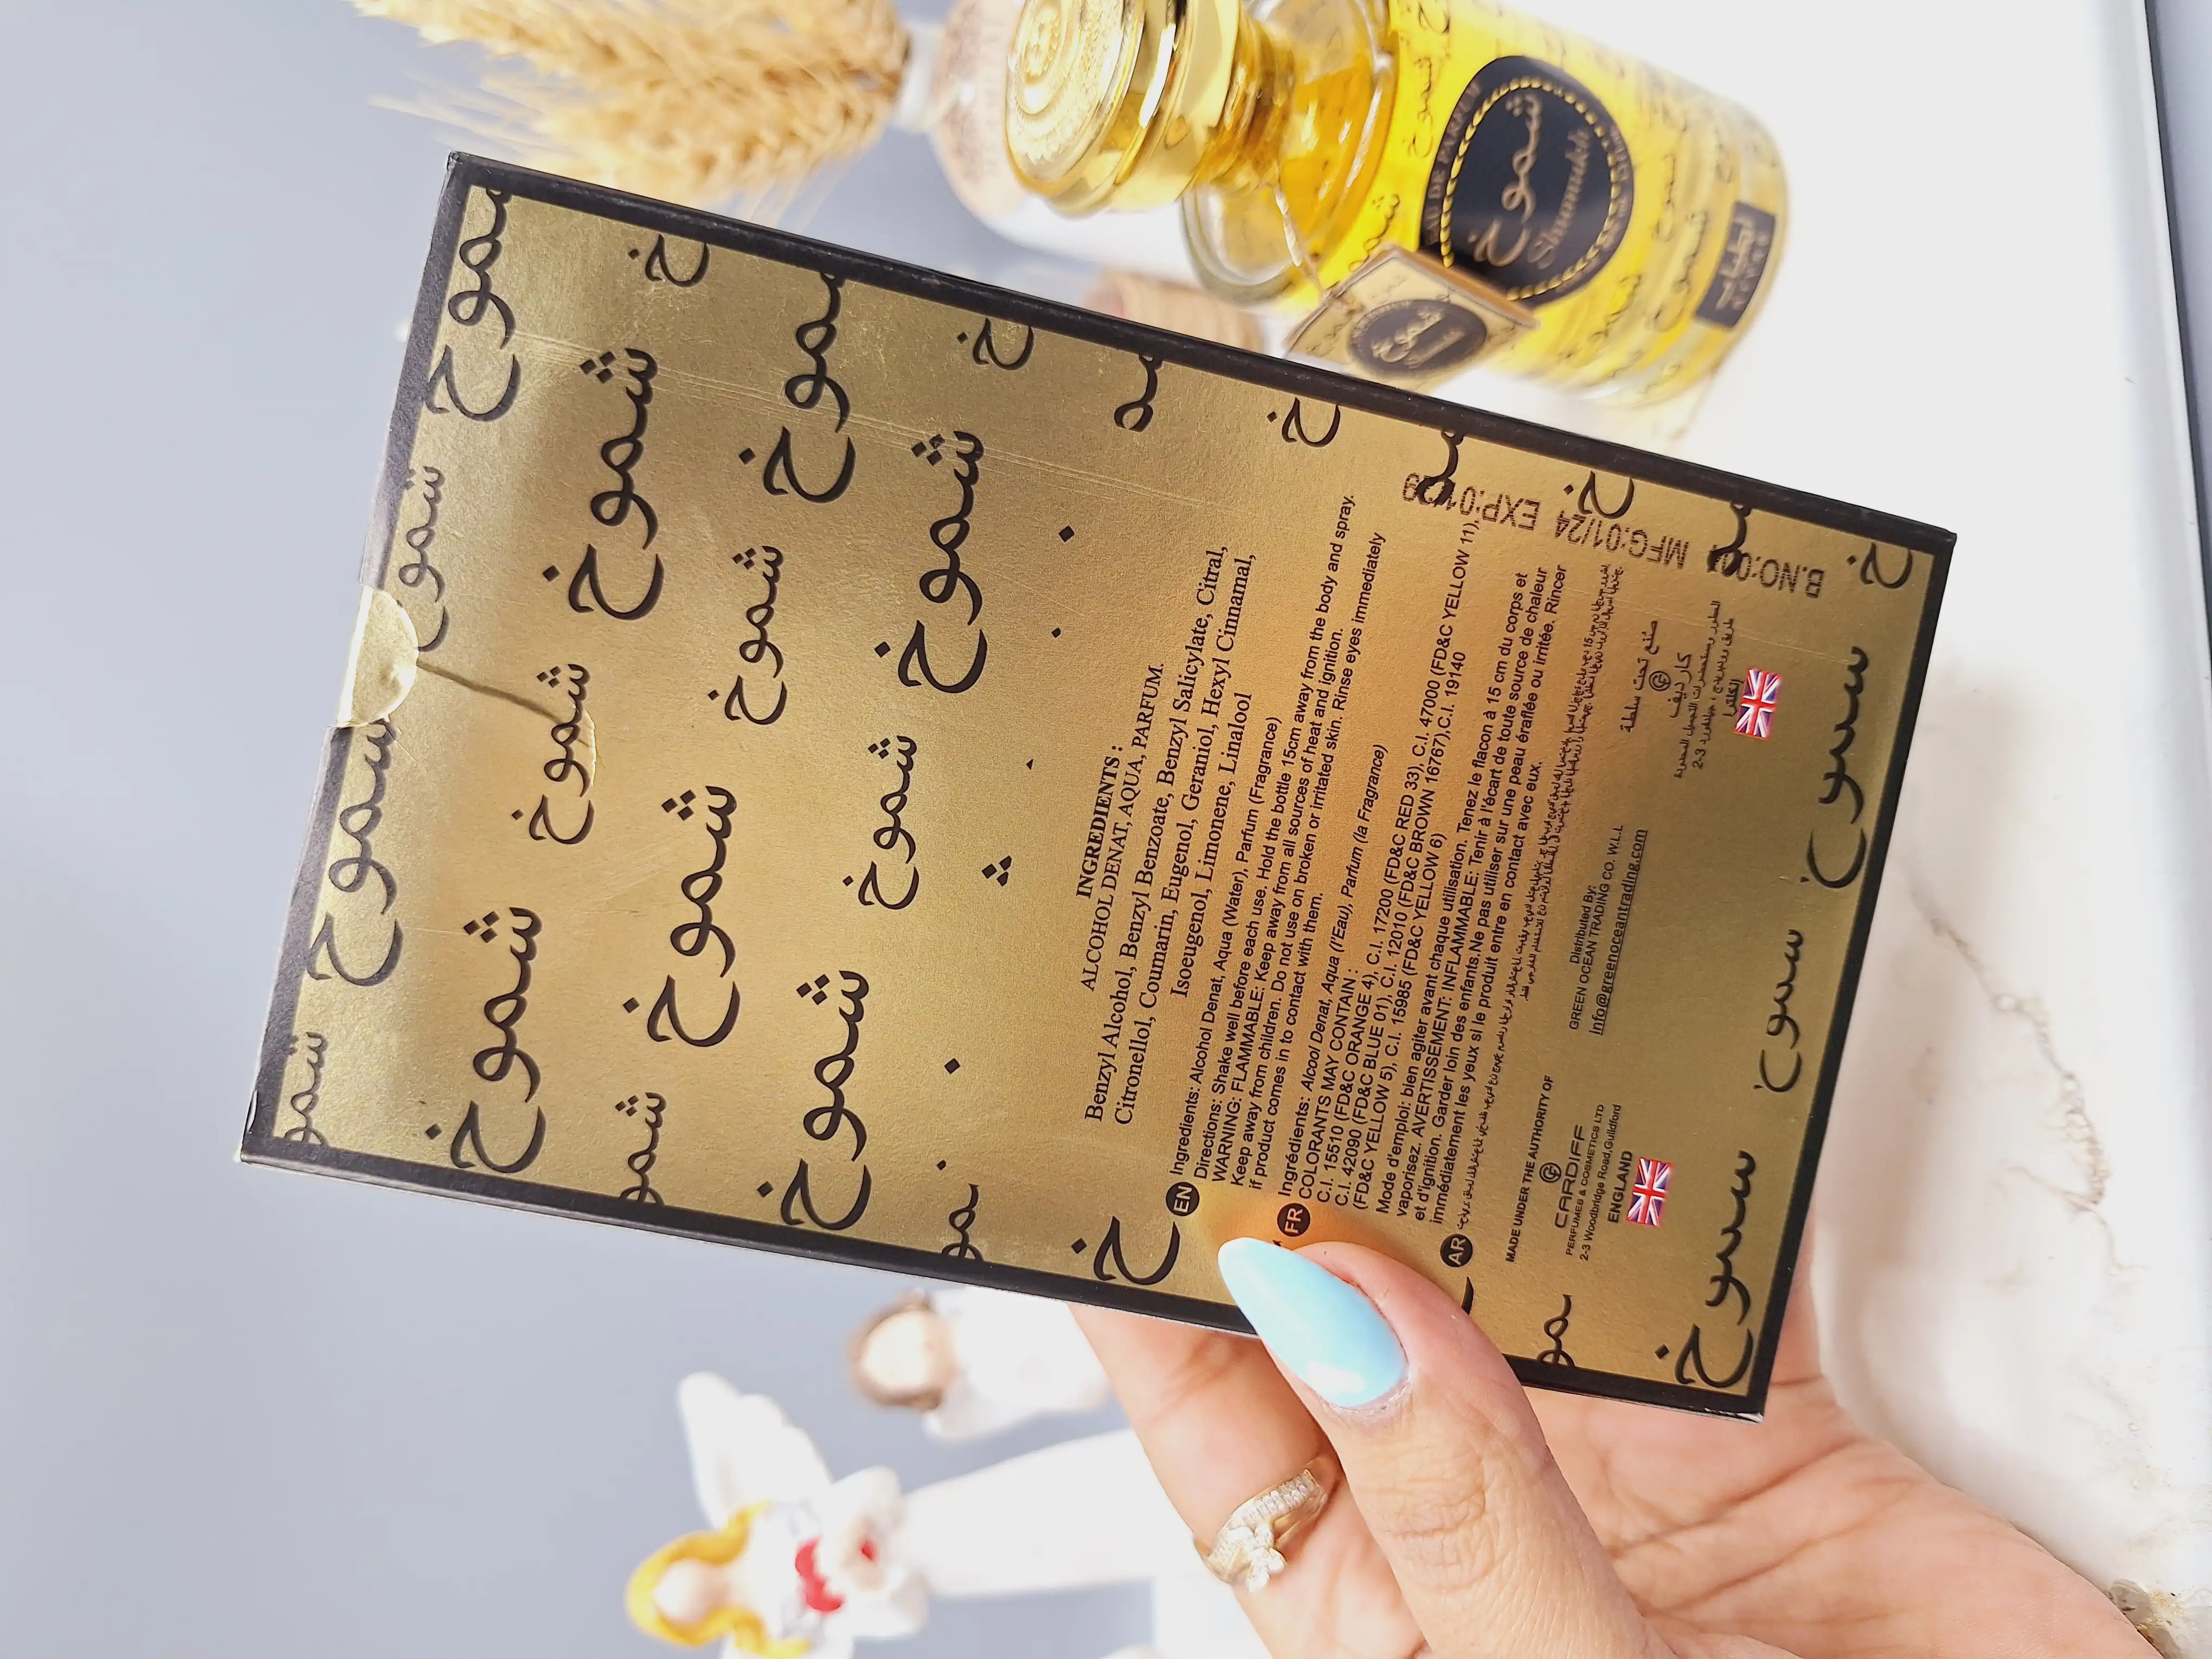 شموخ
شموخ
شموخ
شموخ
شموخ
شموخ
شموخ
شموخ
شموخ
شموخ
شموخ
شموخ
شموخ
شموخ
INGREDIENTS :
ALCOHOL DENAT, AQUA, PARFUM.
Benzyl Alcohol, Benzyl Benzoate, Benzyl Salicylate, Citral,
Citronellol, Coumarin, Eugenol, Geraniol, Hexyl Cinnamal,
Isoeugenol, Limonene, Linalool
EN Ingredients: Alcohol Denat, Aqua (Water), Parfum (Fragrance)
Directions: Shake well before each use. Hold the bottle 15cm away from the body and spray.
WARNING: FLAMMABLE: Keep away from all sources of heat and ignition.
Keep away from children. Do not use on broken or irritated skin. Rinse eyes immediately
if product comes in to contact with them.
FR Ingrédients: Alcool Denat, Aqua (l'Eau), Parfum (la Fragrance)
COLORANTS MAY CONTAIN :
C.I. 15510 (FD&C ORANGE 4), C.I. 17200 (FD&C RED 33), C.I. 47000 (FD&C YELLOW 11),
C.I. 42090 (FD&C BLUE 01), C.I. 12010 (FD&C BROWN 16767),C.I. 19140
(FD&C YELLOW 5), C.I. 15985 (FD&C YELLOW 6)
Mode d'emploi: bien agiter avant chaque utilisation. Tenez le flacon à 15 cm du corps et
vaporisez. AVERTISSEMENT: INFLAMMABLE: Tenir à l'écart de toute source de chaleur
et d'ignition. Garder loin des enfants.Ne pas utiliser sur une peau éraflée ou irritée. Rincer
immédiatement les yeux si le produit entre en contact avec eux.
AR
MADE UNDER THE AUTHORITY OF
CARDIFF
PERFUMES & COSMETICS LTD
2-3 Woodbridge Road,Guildford
ENGLAND
Distributed By:
GREEN OCEAN TRADING CO. W.L.L
Info@greenoceantrading.com
صُنع تحت سلطة
كارديف
إنكلترا
B.NO:00
MFG:01/24
EXP:01/
EAU DE PARFUM
شموخ
Shumukh
شموخ